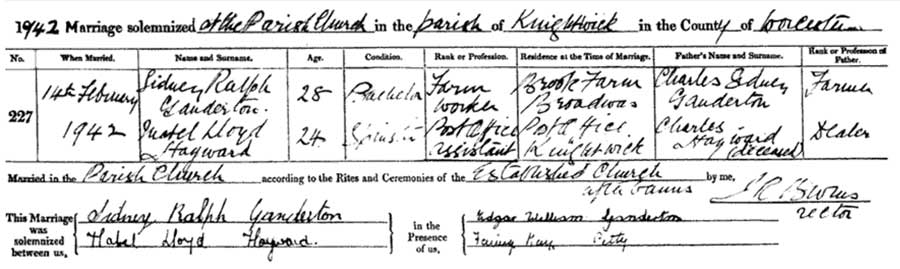 1942 Marriage solemnized at the Parish Church in the parish of Knightwick in the County of Worcester
No. When Married. Name and Surname. Age. Condition. Rank or Profession. Residence at the Time of Marriage. Father's Name and Surname. Rank or Profession of Father.
227
14th February 1942
Sidney Ralph
Ganderton
28
Bachelor
Farm
worker
Brook Farm
Broadwas
Charles Sidney
Ganderton
Farmer
Lloyd
Hayward
24
Spinster
Post Office
assistant
Post Office
Knightwick
Charles
Hayward
(deceased)
Dealer
Married in the Parish Church according to the Rites and Ceremonies of the Established Church by me,
after banns
rector
This Marriage
was
solemnized
between us,
Sidney Ralph Ganderton
Lloyd Hayward.
in the
Presence
of us,
Edgar William Ganderton